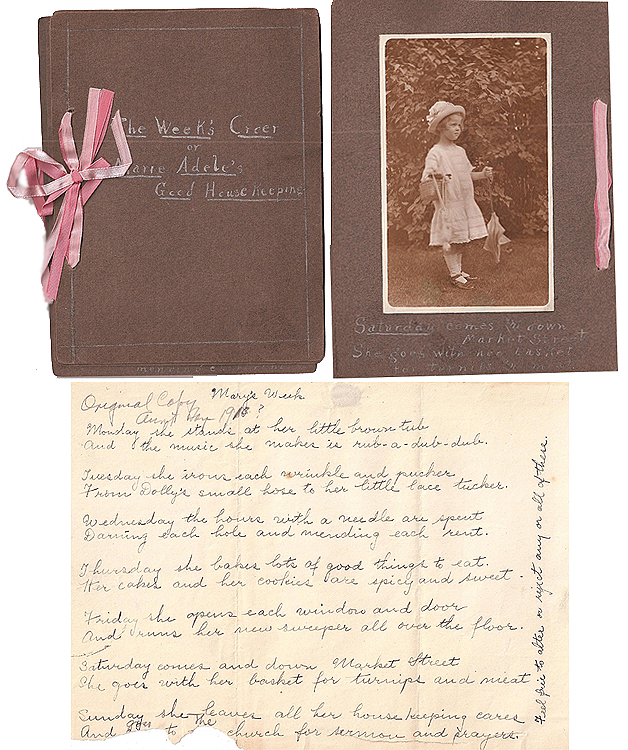 The Week's Creer
or
Marie Adele's
Good Housekeeping
Saturday comes & down
Market Street
She goes with her basket
for turnips
Original Copy Mary's Week
1916?
Monday she stands at her little brown tub
And the music she makes is rub-a-dub-dub.
Tuesday she irons each wrinkle and pucker
From Dolly's small hose to her little lace tucker.
Wednesday the hours with a needle are spent
Darning each hole and mending each rent.
Thursday she bakes lots of good things to eat.
Her cakes and her cookies are spicy and sweet.
Friday she opens each window and door
And runs her new sweeper all over the floor.
Saturday comes and down Market Street
She goes with her basket for turnips and meat
Sunday she leaves all her housekeeping cares
And goes to the church for sermon and prayers
Feel free to alter or reject any or all of these.